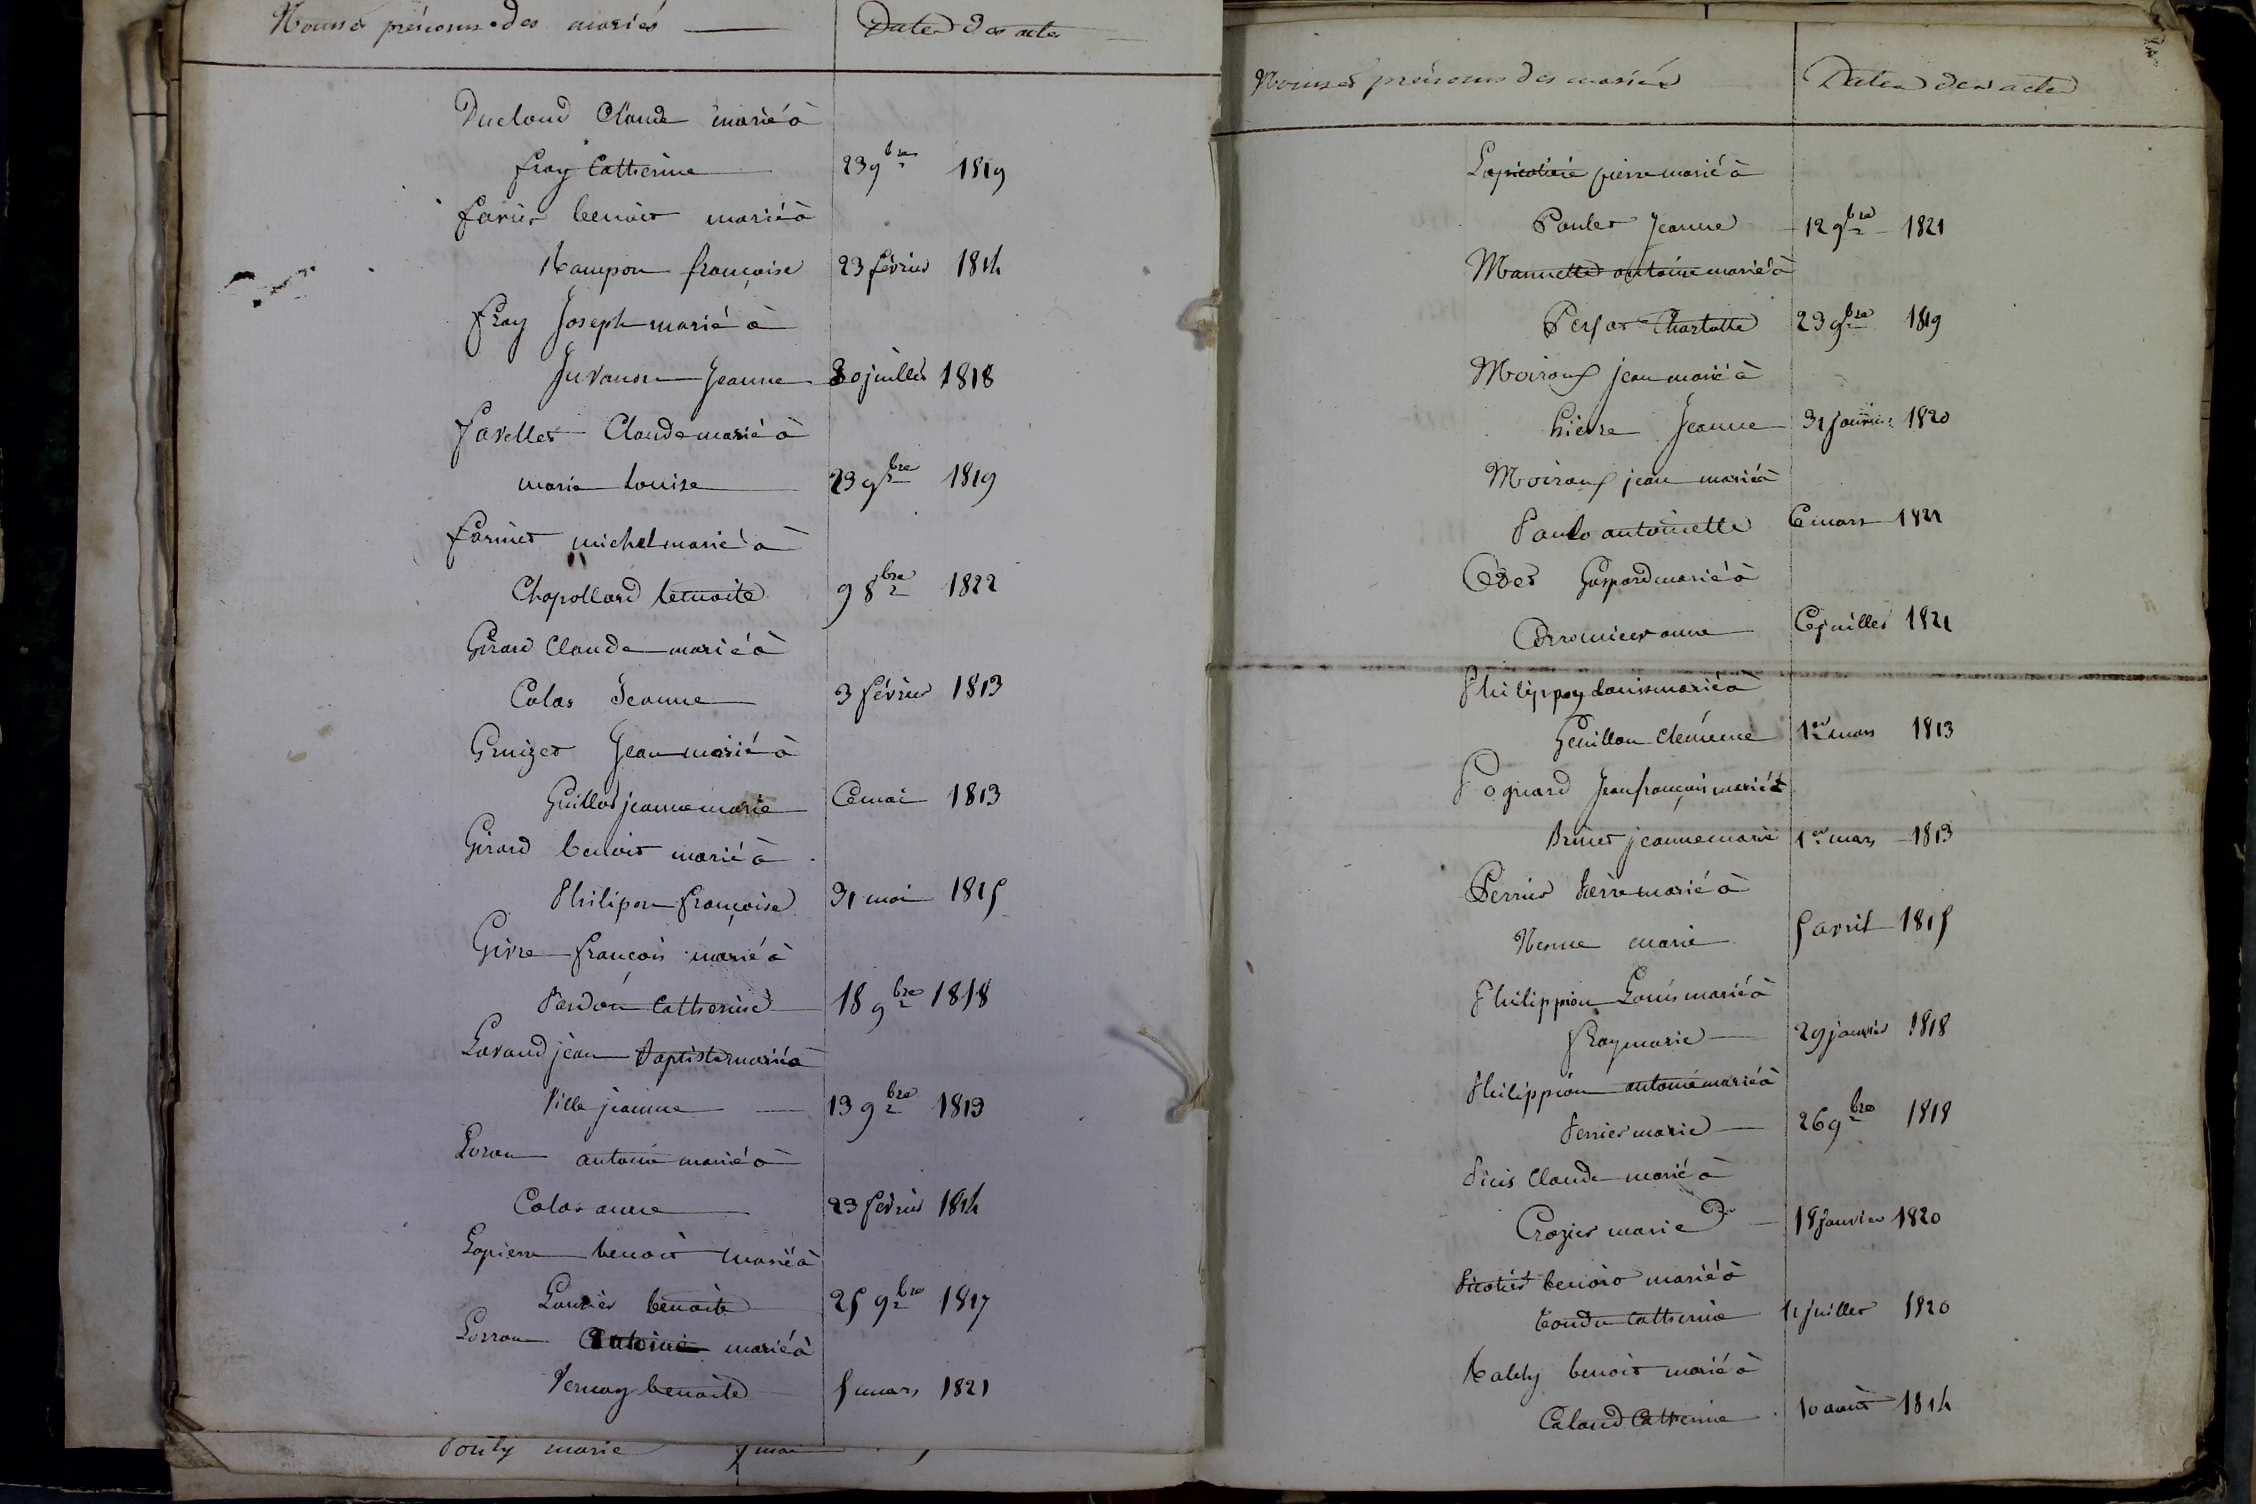 Noms et prénoms des mariés
Dates des actes
Ducloud Claude marié à
fray Catherine 23 9bre 1819
farier benoit marié à
Rampon françoise 23 février 1814
fray Joseph marié à
Juvanon Jeanne 30 juillet 1818
favellet Claude marié à
marie Louise 23 9bre 1819
farinet michel marié à
Chapollard benoite 9 8bre 1822
Girard Claude marié à
Calas Jeanne 3 février 1813
Gruizet Jean marié à
Guillot jeanne marie 6 mai 1813
Girard benoit marié à
Philipon françoise 31 mai 1815
Givre françois marié à
Pardon Catherine 18 9bre 1818
Lavaud jean baptiste marié à
Ville jeanne 13 9bre 1813
Loron antoine marié à
Calas anne 23 février 1814
Lapierre benoit marié à
benoite 25 9bre 1817
Lorron Antoine marié à
Vernay benoite 5 mars 1821
marie 7 mai
Noms et prénoms des mariés
Dates des actes
pierre marié à
Paulet Jeanne 12 9bre 1821
antoine marié à
Charlotte 23 9bre 1819
Moiroux jean marié à
Jeanne 31 janvier 1820
Moiroux jean marié à
antoinette 6 mars 1821
Gaspard marié à
anne 6 juillet 1821
Philippon Louis marié à
1er mars 1813
Pognard Jean françois marié à
Brunet jeanne marie 1er mars 1813
Perrier Pierre marié à
marie 5 avril 1815
Philippion Louis marié à
fray marie 29 janvier 1818
Philippion antoine marié à
Perrier marie 26 9bre 1818
Claude marié à
Crozier marie 18 janvier 1820
benoit marié à
Catherine 11 juillet 1820
benoit marié à
Calaud Catherine 10 août 1814